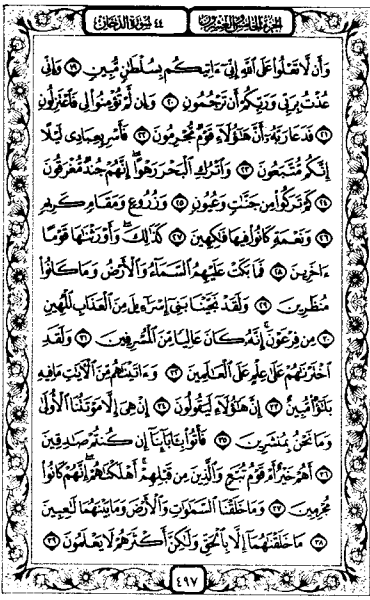 الجزء الخامس والعشرون
٤٤ سورة الدخان
وَأَن لَّا تَعْلُوا۟ عَلَى ٱللَّهِ إِنِّىٓ ءَاتِيكُم بِسُلْطَٰنٍ مُّبِينٍ ١٩ وَإِنِّى
عُذْتُ بِرَبِّى وَرَبِّكُمْ أَن تَرْجُمُونِ ٢٠ وَإِن لَّمْ تُؤْمِنُوا۟ لِى فَٱعْتَزِلُونِ
٢١ فَدَعَا رَبَّهُۥٓ أَنَّ هَٰٓؤُلَآءِ قَوْمٌ مُّجْرِمُونَ ٢٢ فَأَسْرِ بِعِبَادِى لَيْلًا
إِنَّكُم مُّتَّبَعُونَ ٢٣ وَٱتْرُكِ ٱلْبَحْرَ رَهْوًا ۖ إِنَّهُمْ جُندٌ مُّغْرَقُونَ
٢٤ كَمْ تَرَكُوا۟ مِن جَنَّٰتٍ وَعُيُونٍ ٢٥ وَزُرُوعٍ وَمَقَامٍ كَرِيمٍ
٢٦ وَنَعْمَةٍ كَانُوا۟ فِيهَا فَٰكِهِينَ ٢٧ كَذَٰلِكَ ۖ وَأَوْرَثْنَٰهَا قَوْمًا
ءَاخَرِينَ ٢٨ فَمَا بَكَتْ عَلَيْهِمُ ٱلسَّمَآءُ وَٱلْأَرْضُ وَمَا كَانُوا۟
مُنظَرِينَ ٢٩ وَلَقَدْ نَجَّيْنَا بَنِىٓ إِسْرَٰٓءِيلَ مِنَ ٱلْعَذَابِ ٱلْمُهِينِ
٣٠ مِن فِرْعَوْنَ ۚ إِنَّهُۥ كَانَ عَالِيًا مِّنَ ٱلْمُسْرِفِينَ ٣١ وَلَقَدِ
ٱخْتَرْنَٰهُمْ عَلَىٰ عِلْمٍ عَلَى ٱلْعَٰلَمِينَ ٣٢ وَءَاتَيْنَٰهُم مِّنَ ٱلْءَايَٰتِ مَا فِيهِ
بَلَٰٓؤٌا۟ مُّبِينٌ ٣٣ إِنَّ هَٰٓؤُلَآءِ لَيَقُولُونَ ٣٤ إِنْ هِىَ إِلَّا مَوْتَتُنَا ٱلْأُولَىٰ
وَمَا نَحْنُ بِمُنشَرِينَ ٣٥ فَأْتُوا۟ بِـَٔابَآئِنَآ إِن كُنتُمْ صَٰدِقِينَ
٣٦ أَهُمْ خَيْرٌ أَمْ قَوْمُ تُبَّعٍ وَٱلَّذِينَ مِن قَبْلِهِمْ ۚ أَهْلَكْنَٰهُمْ ۖ إِنَّهُمْ كَانُوا۟
مُجْرِمِينَ ٣٧ وَمَا خَلَقْنَا ٱلسَّمَٰوَٰتِ وَٱلْأَرْضَ وَمَا بَيْنَهُمَا لَٰعِبِينَ
٣٨ مَا خَلَقْنَٰهُمَآ إِلَّا بِٱلْحَقِّ وَلَٰكِنَّ أَكْثَرَهُمْ لَا يَعْلَمُونَ ٣٩
٤٩٧